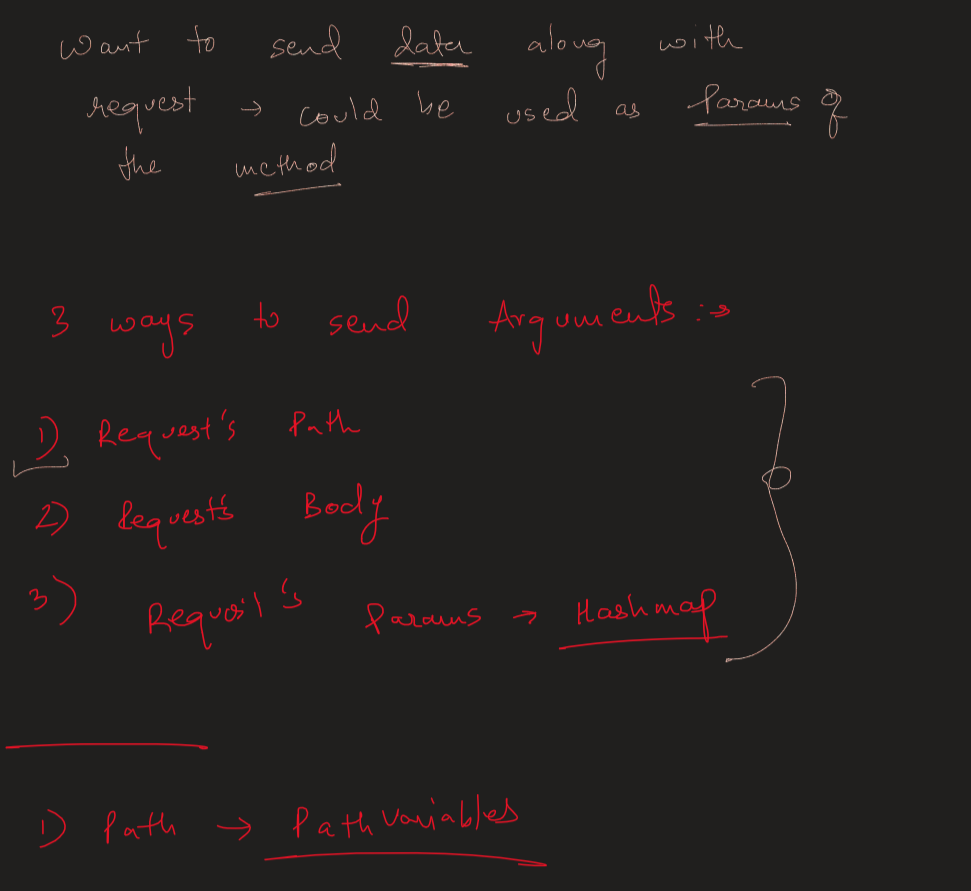 want to send data along with
request → could be used as Params of
the method
3 ways to send Arguments :→
1) Request's Path
2) Request's Body
3) Request's Params → Hashmap
1) Path → Path Variables